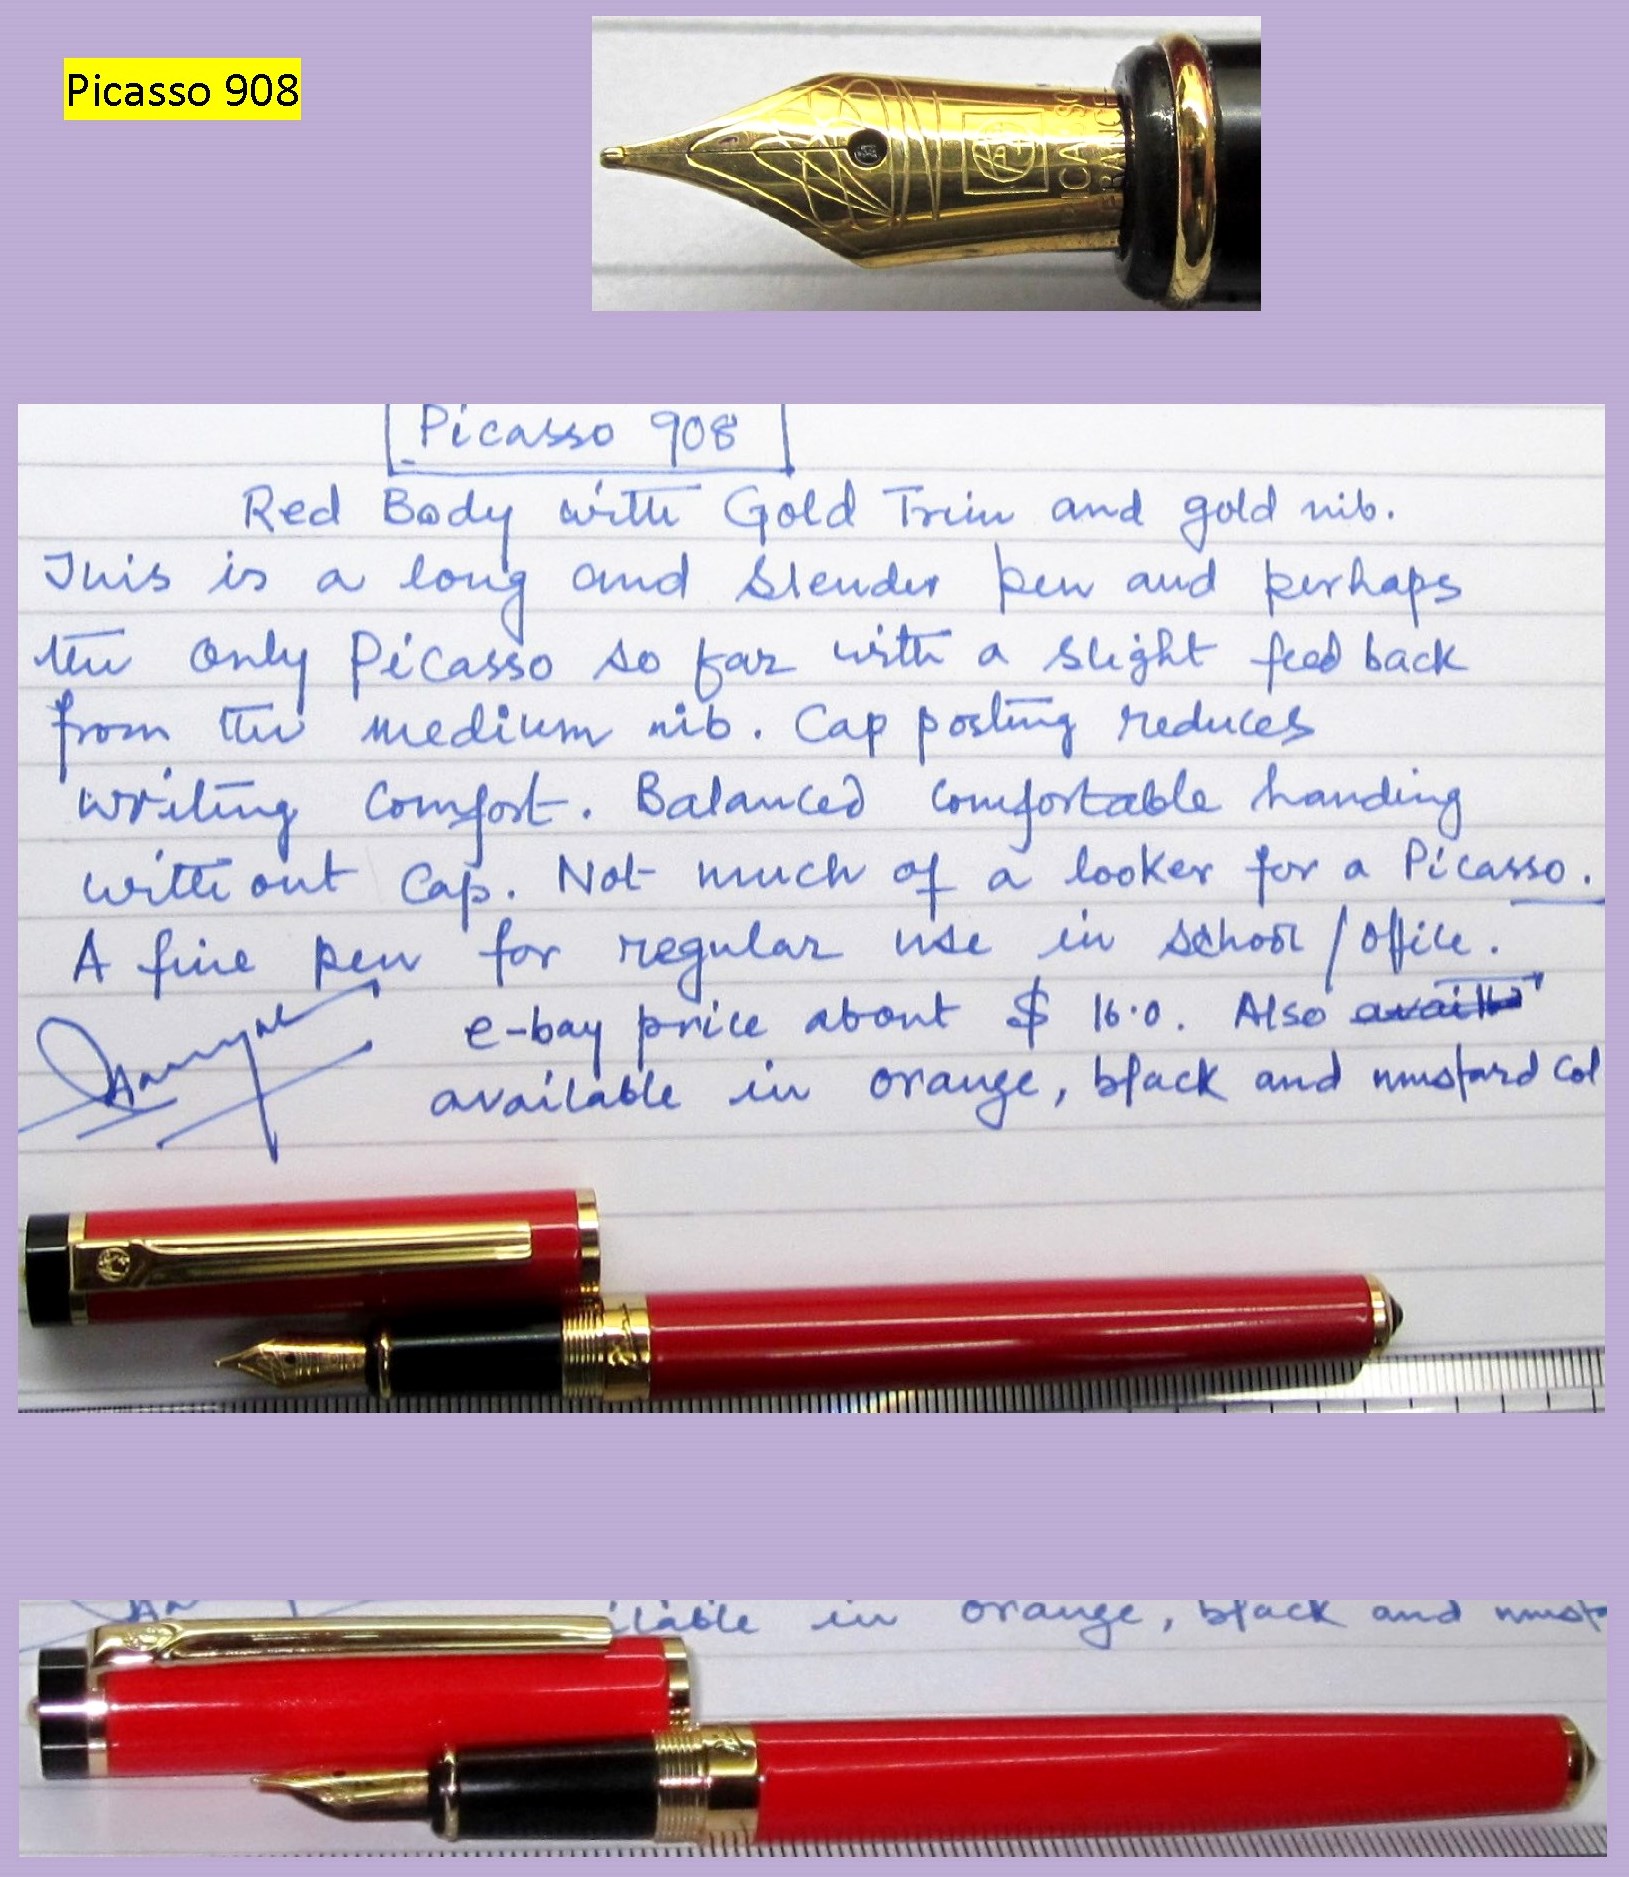 Picasso 908
PICASSO
FRANCE
Picasso 908
Red Body with Gold Trim and gold nib.
This is a long and slender pen and perhaps
the only Picasso so far with a slight feed back
from the medium nib. Cap posting reduces
writing comfort. Balanced comfortable handing
without Cap. Not much of a looker for a Picasso.
A fine pen for regular use in school/office.
e-bay price about $ 16.0. Also
available in orange, black and mustard Col
ilable in orange, black and must